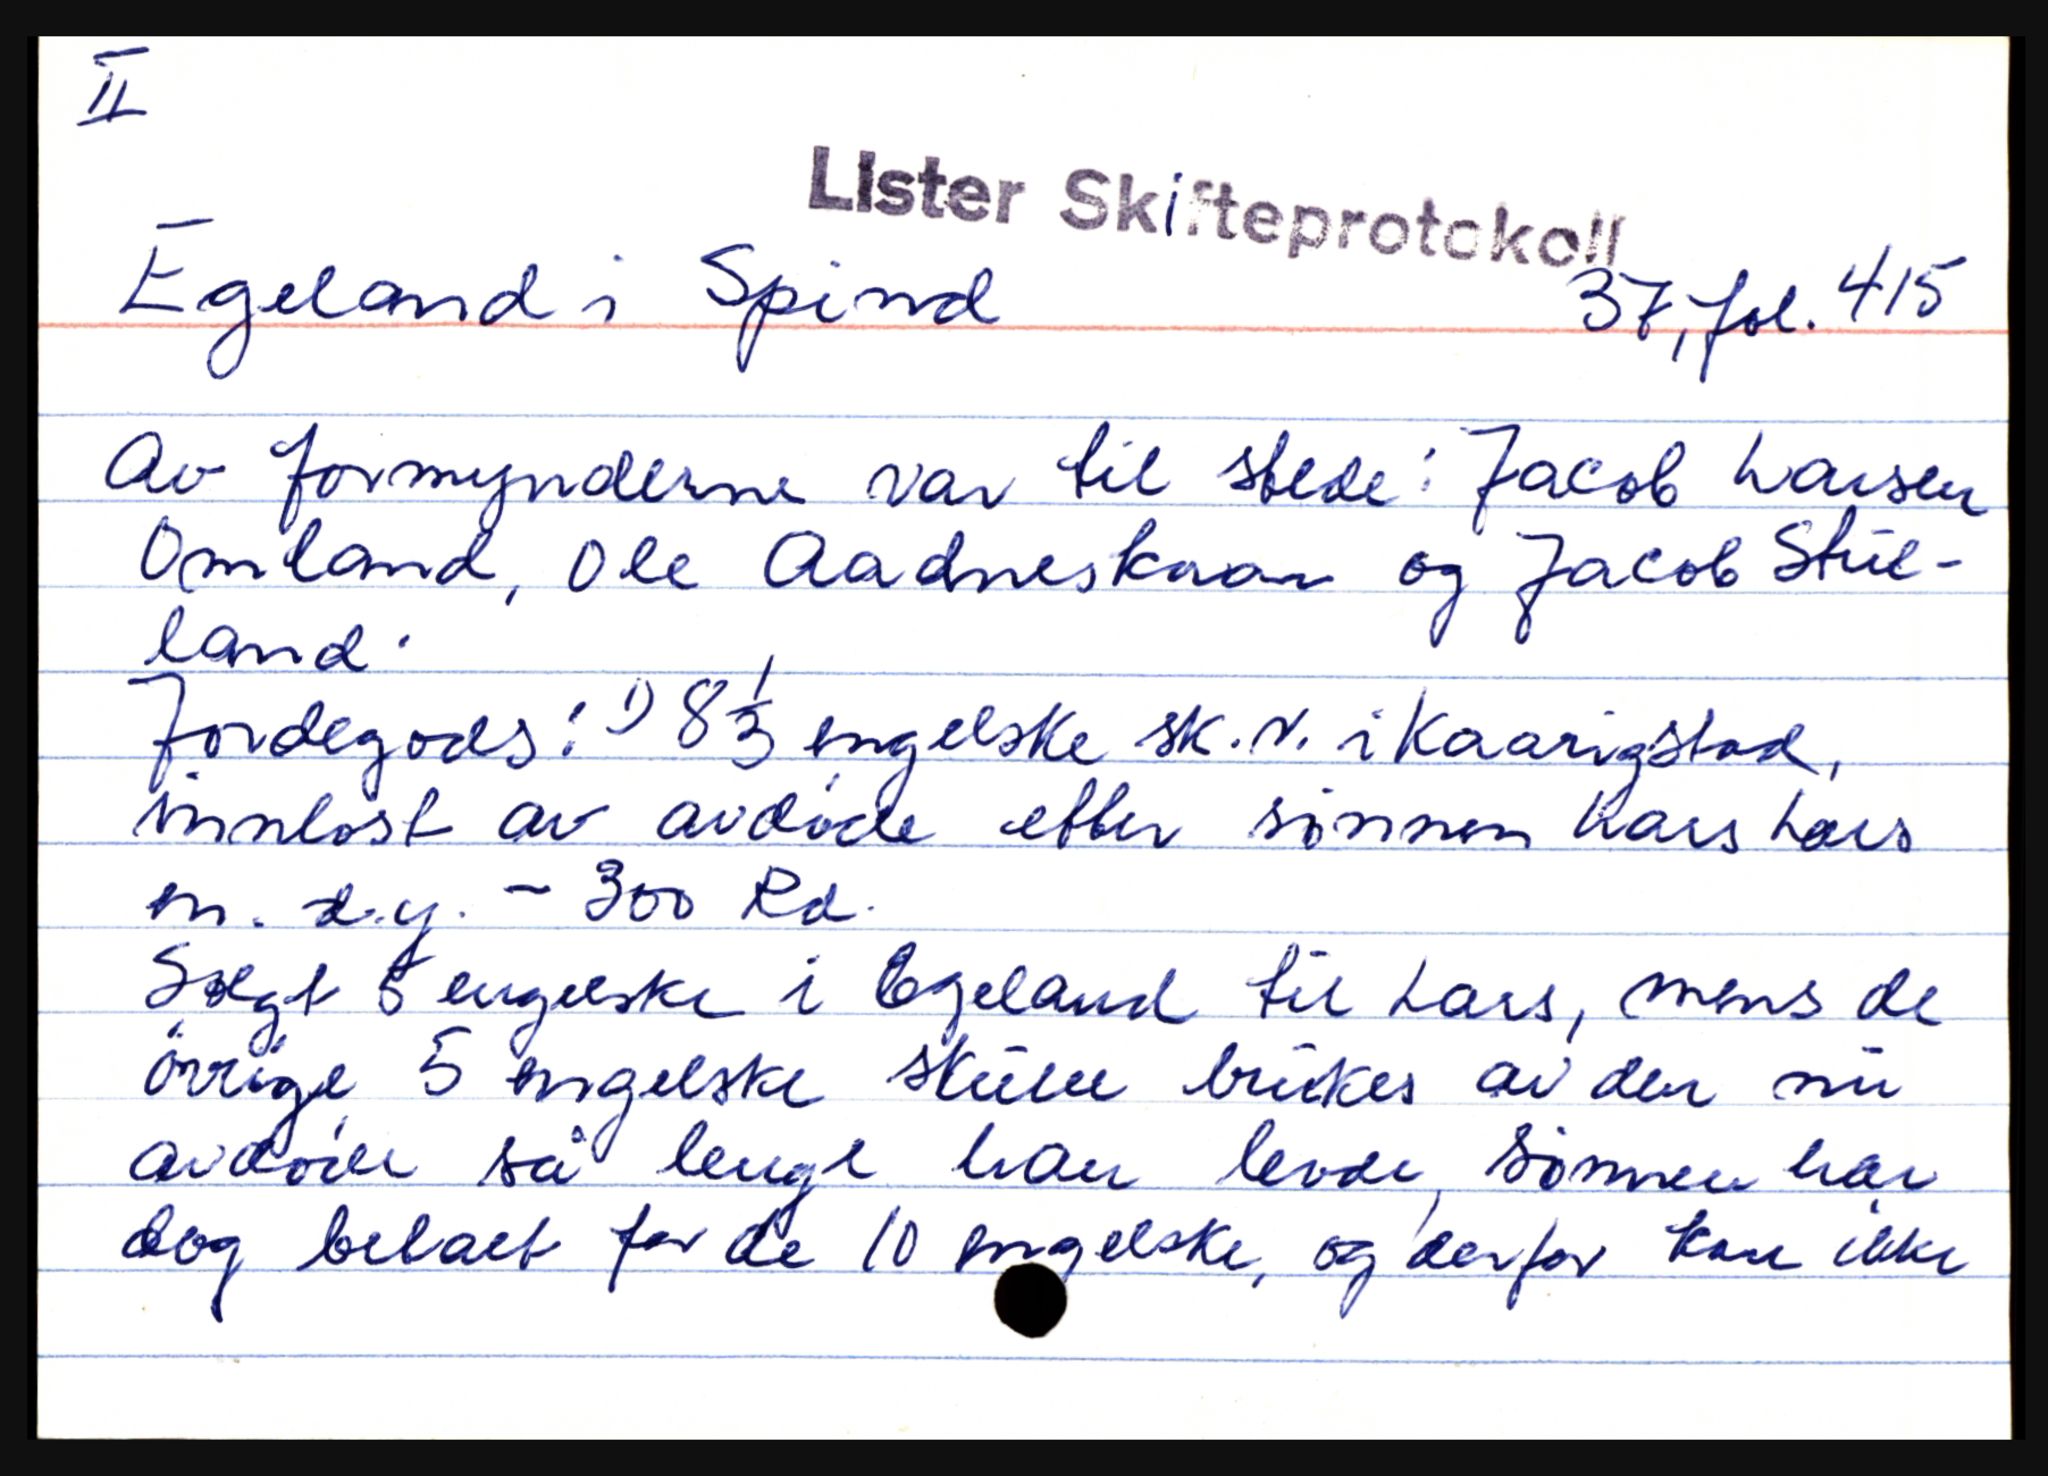 II
Lister Skifteprotokoll
Egeland i Spind 37, fol. 415
Av formynderne var til stede: Jacob Larsen
Omland, Ole Aadneskaar og Jacob Stue-
land.
Jordegods: 1) 8 1/3 engelske sk. v. i Kaarigstad,
innløst av avdøde etter sønnen Lars Lars
en. d.y. - 300 Rd.
Solgt 5 engelske i Egeland til Lars, mens de
øvrige 5 engelske skulle brukes av den nu
avdøde så lenge han levde, sønnen har
dog betalt for de 10 engelske, og derfor kan ikke